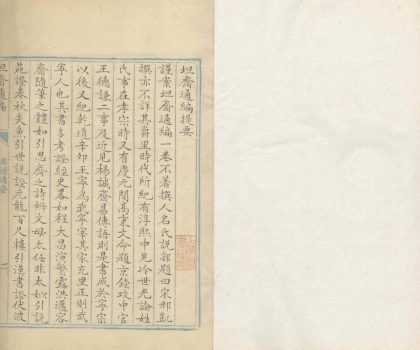 坦齋通編提要
謹案坦齋通編一卷不著撰人名氏説郛題曰宋邢凱
撰亦不詳其爵里時代所紀有淳熙中見冷世光論姓
氏事在孝宗時又有慶元間高東文令題京錢攻中官
王德謙二事及近見楊誠齋易傳語則是書成於寧宗
以後又紀乾道辛卯王寧爲武寧宰其宗充里正則武
寧人也其書多考證經史畧如程大昌演繁露洪邁容
齋隨筆之體如引思齋之詩辨文母太任非太姒引説
苑證春秋矢魚引世説證元龍百尺樓引漢書證伏波
坦齋通編